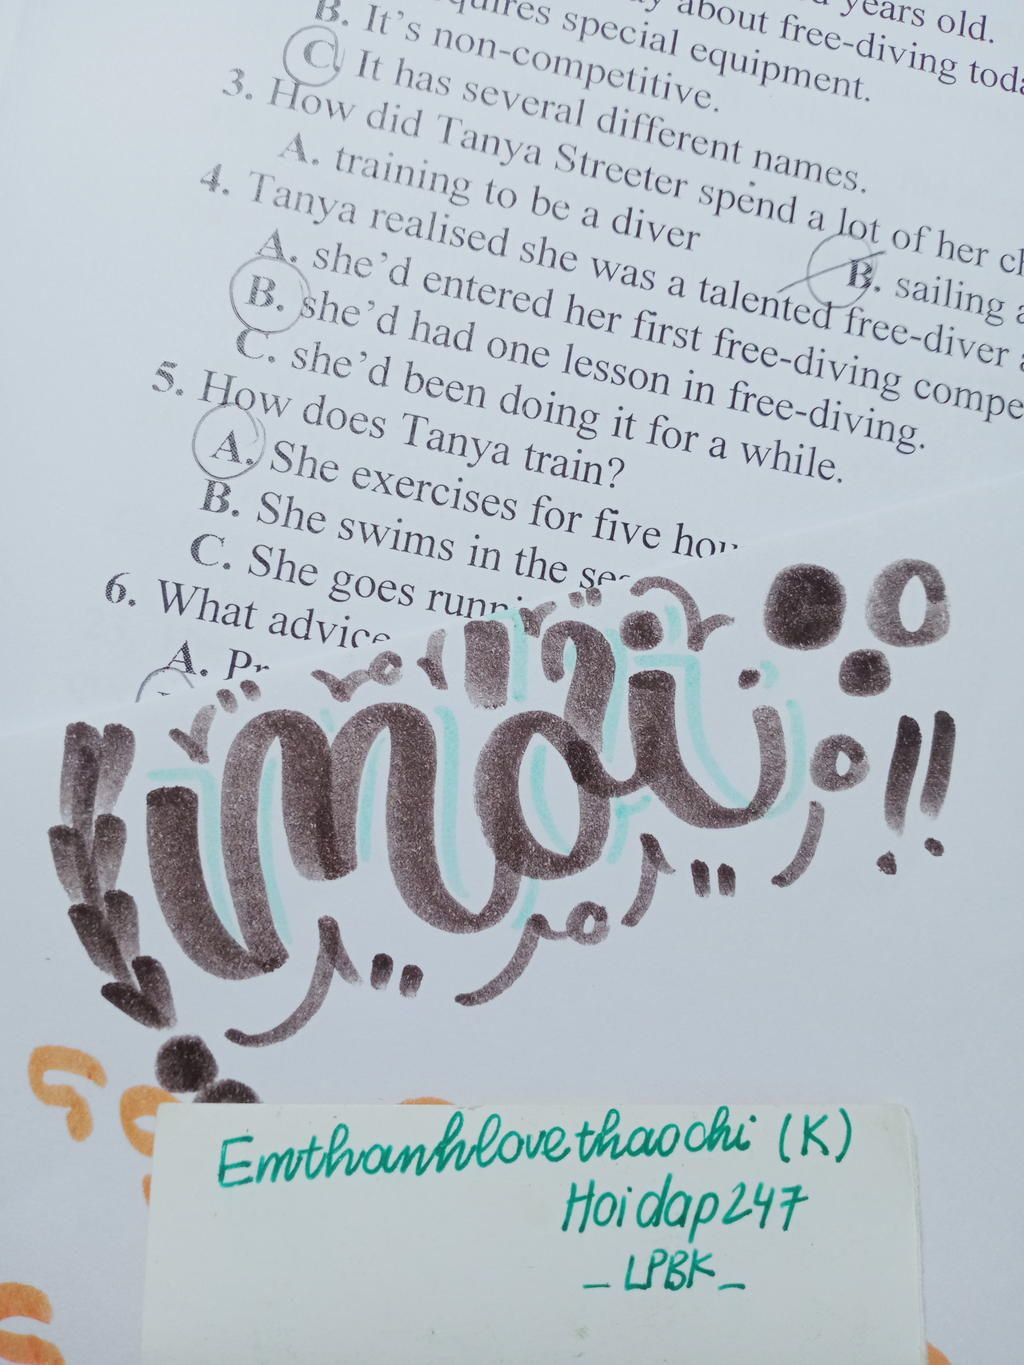 years old.
about free-diving toda
special equipment.
B. It's non-competitive.
C It has several different names.
3. How did Tanya Streeter spend a lot of her ch
A. training to be a diver B. sailing a
4. Tanya realised she was a talented free-diver
A. she'd entered her first free-diving compe
B. she'd had one lesson in free-diving.
C. she'd been doing it for a while.
5. How does Tanya train?
A. She exercises for five hou
B. She swims in the se
C. She goes runn
6. What advice
A. Pr
Emthanhlovethaochi (K)
Hoidap247
_ LPBK _